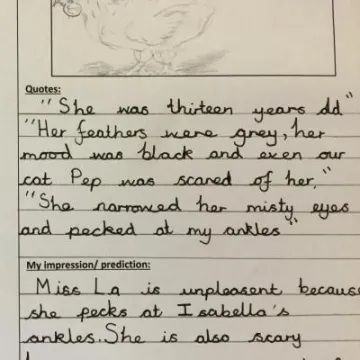 Quotes:
"She was thirteen years old"
"Her feathers were grey, her
mood was black and even our
cat Pep was scared of her."
"She narrowed her misty eyes
and pecked at my ankles"
My impression/ prediction:
Miss La is unpleasent because
she pecks at Isabella's
ankles. She is also scary